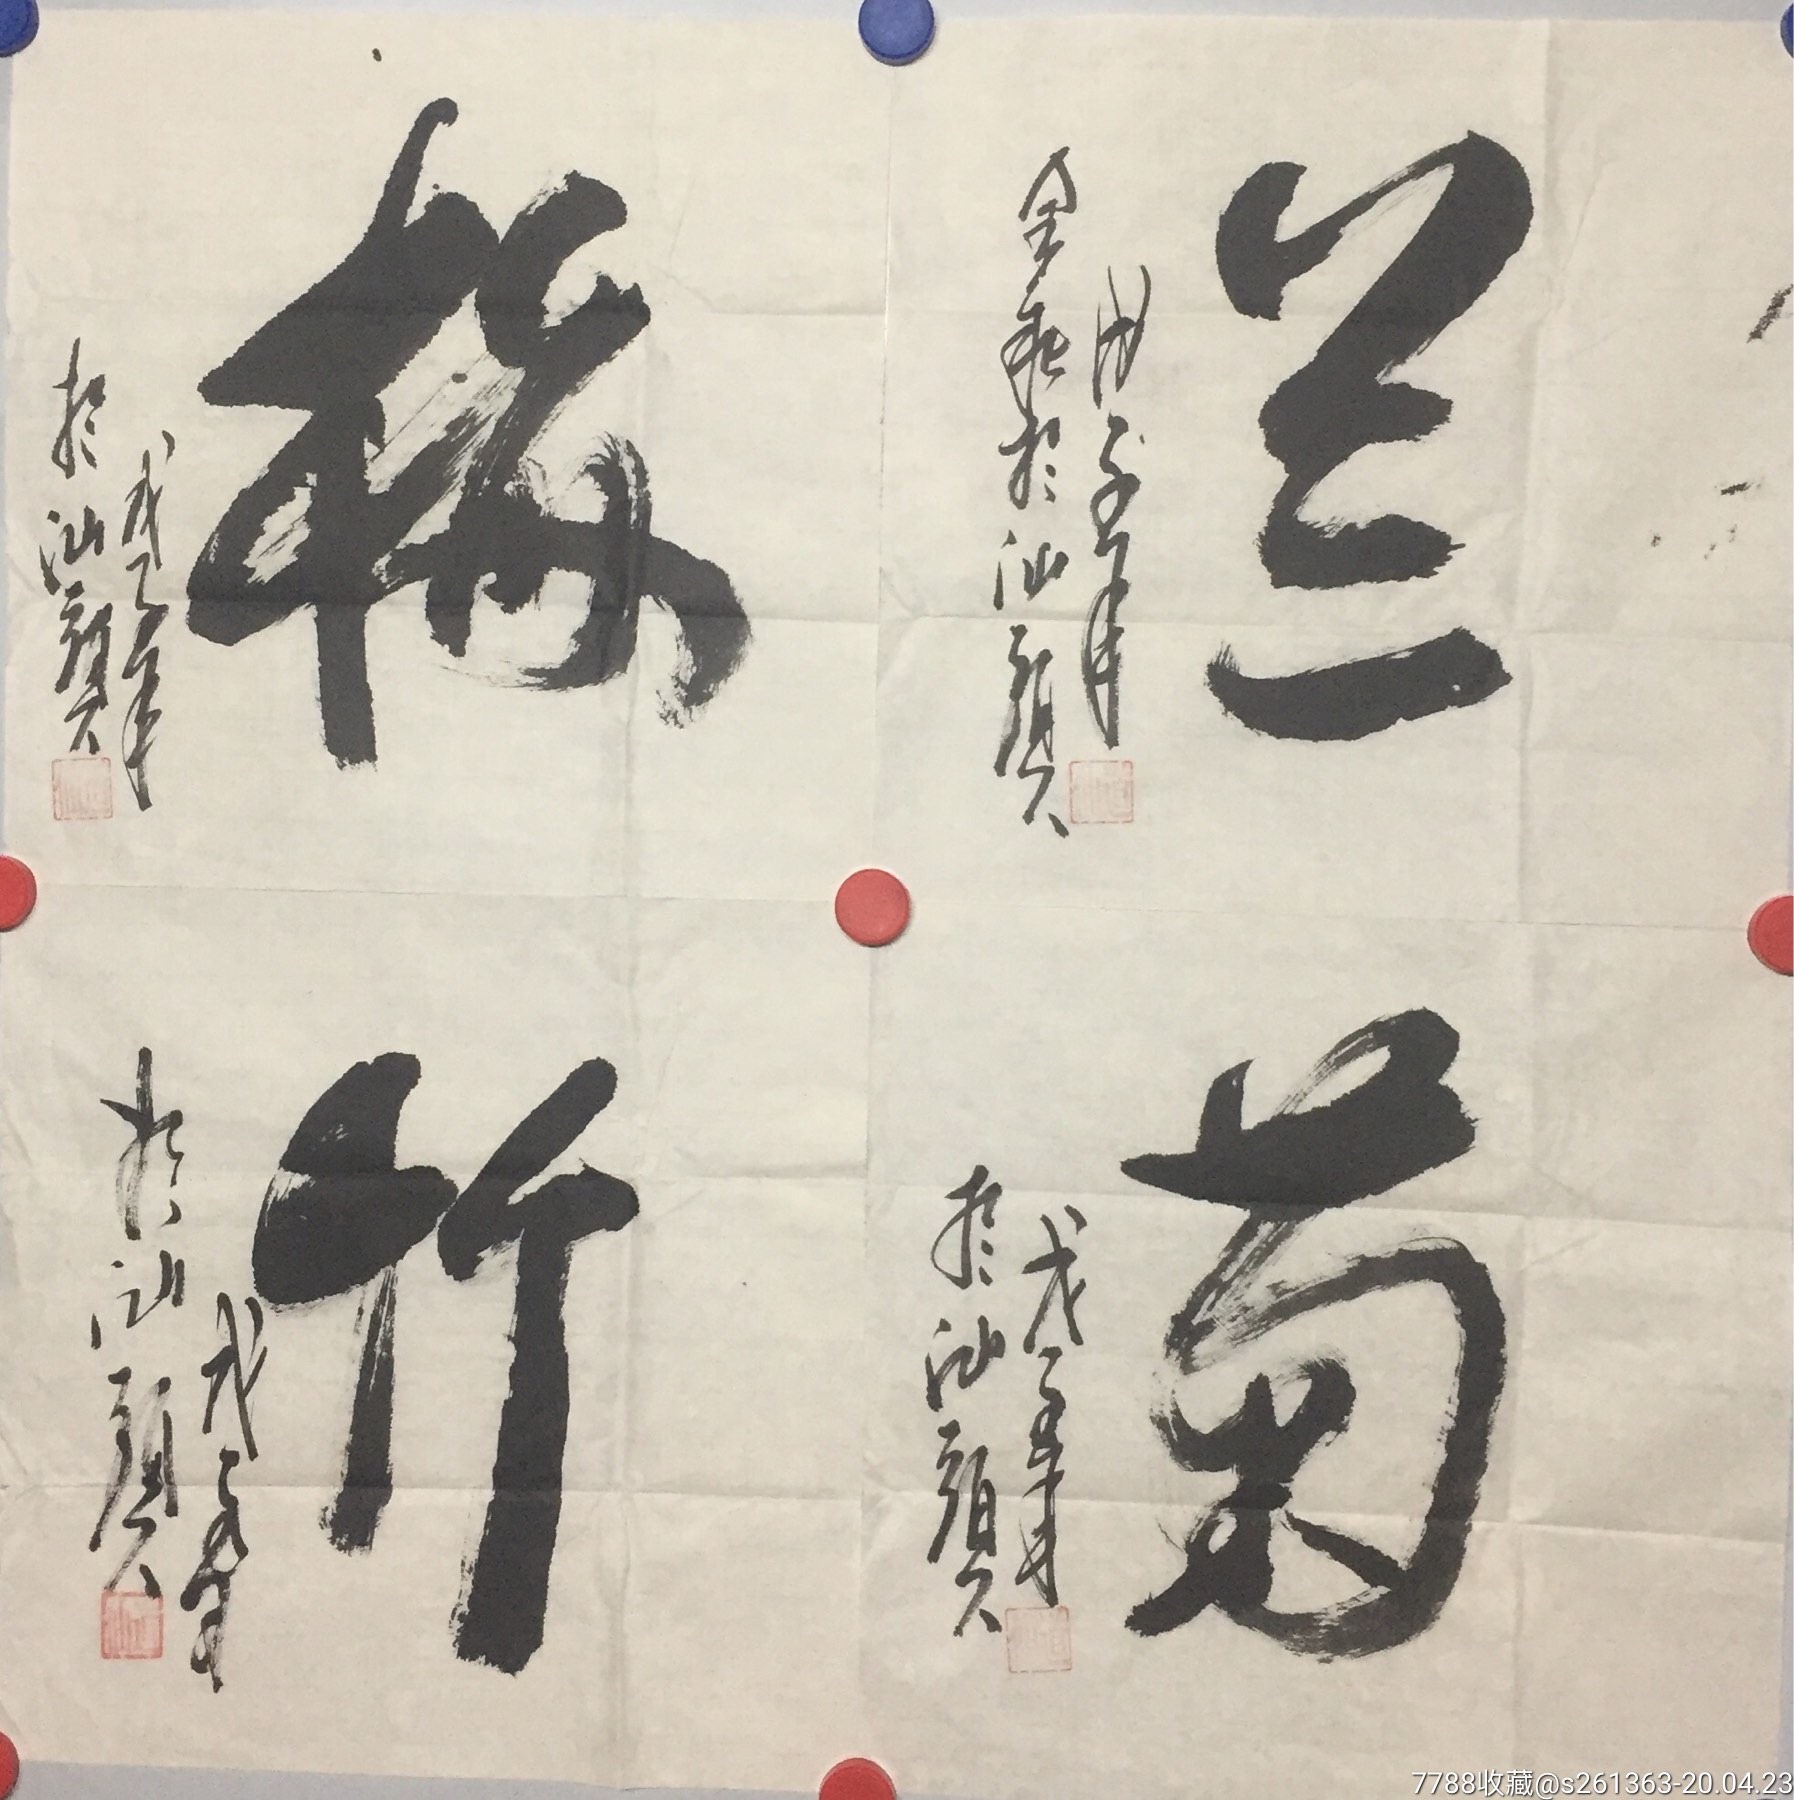 梅
戊子年
於汕頭
兰
戊子年
於汕頭
竹
戊子年
於汕頭
菊
戊子年
於汕頭
7788收藏@s261363-20.04.23